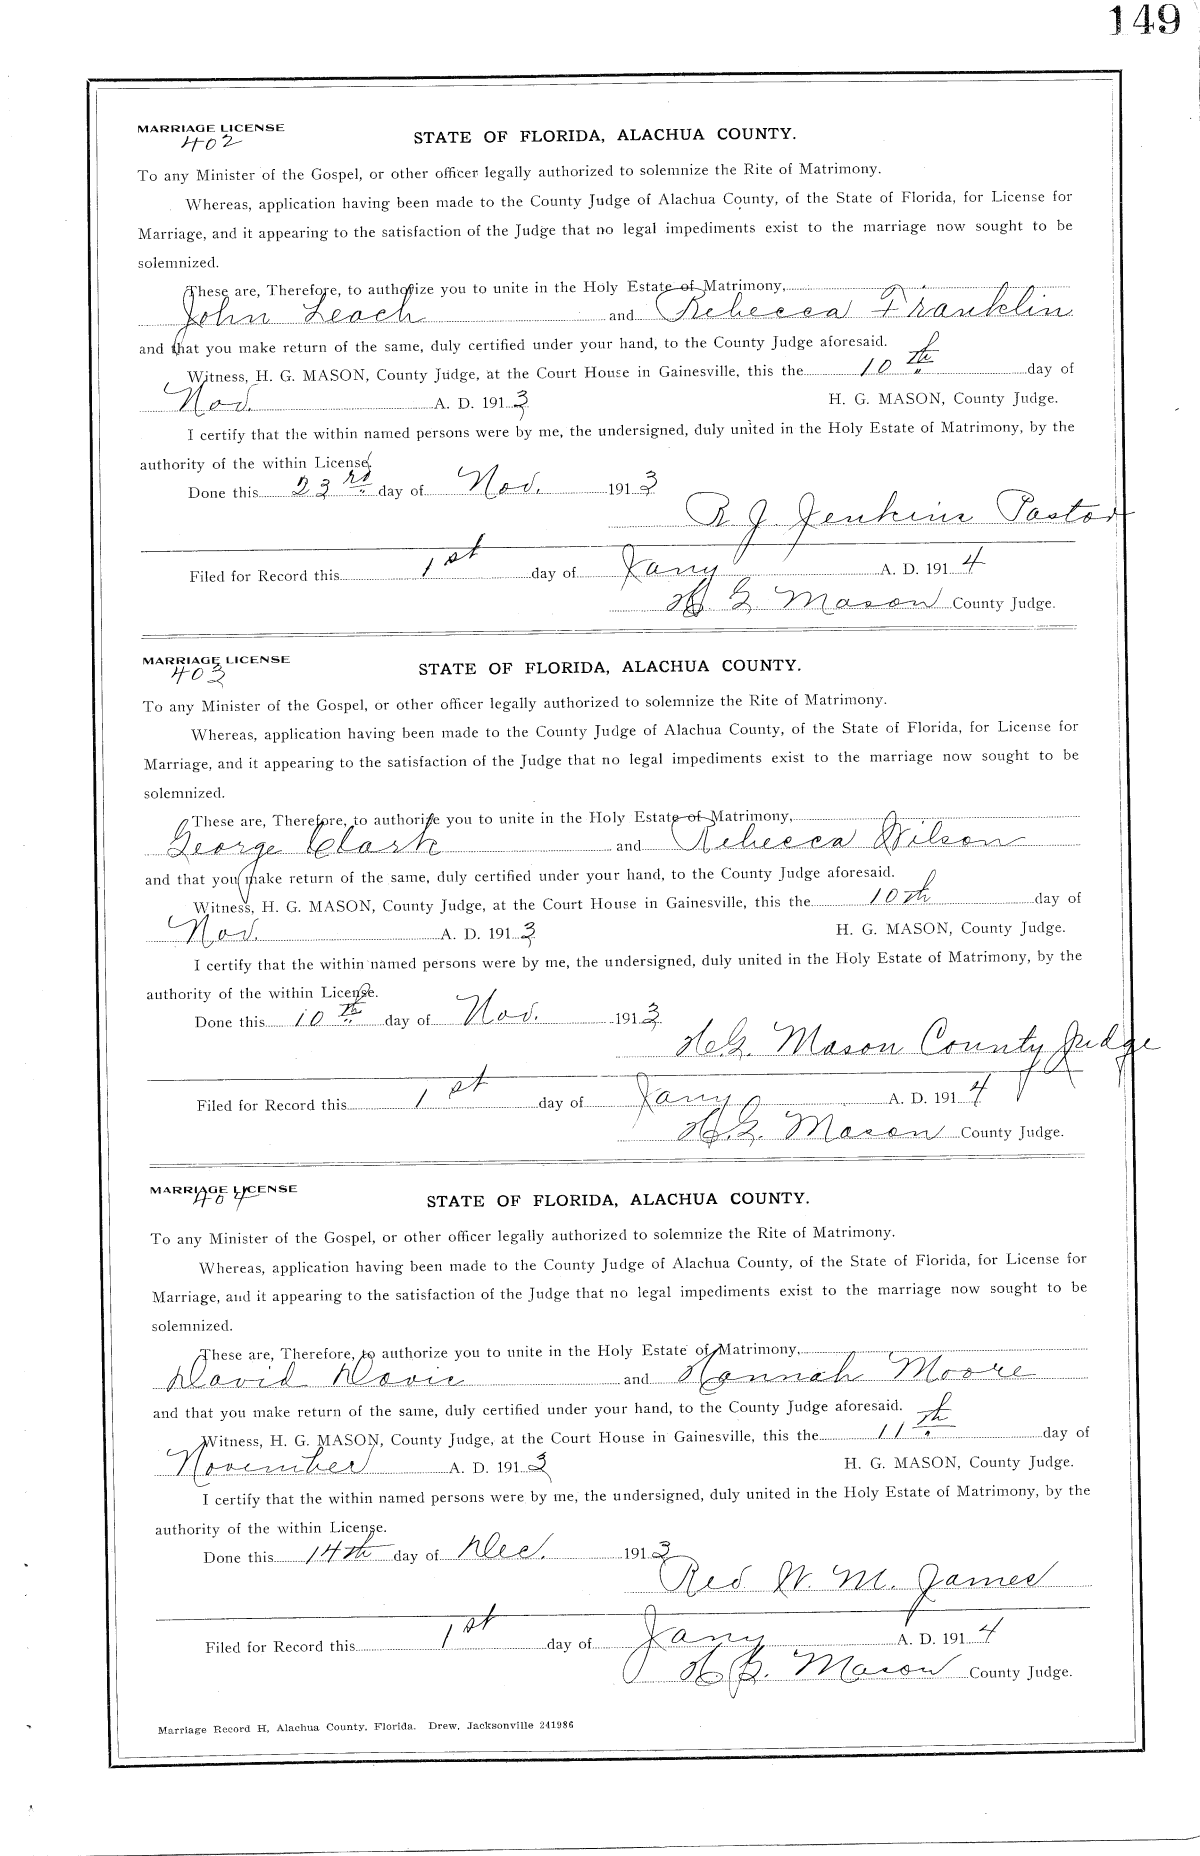 149
MARRIAGE LICENSE
402
STATE OF FLORIDA, ALACHUA COUNTY.
To any Minister of the Gospel, or other officer legally authorized to solemnize the Rite of Matrimony.
Whereas, application having been made to the County Judge of Alachua County, of the State of Florida, for License for
Marriage, and it appearing to the satisfaction of the Judge that no legal impediments exist to the marriage now sought to be
solemnized.
These are, Therefore, to authorize you to unite in the Holy Estate of Matrimony,
John Leach and Rebecca Franklin
and that you make return of the same, duly certified under your hand, to the County Judge aforesaid.
Witness, H. G. MASON, County Judge, at the Court House in Gainesville, this the 10th day of
Nov. A. D. 1913 H. G. MASON, County Judge.
I certify that the within named persons were by me, the undersigned, duly united in the Holy Estate of Matrimony, by the
authority of the within License.
Done this 23rd day of Nov. 1913
R J. Jenkins Pastor
Filed for Record this 1st day of Jany A. D. 1914
H G Mason County Judge.
MARRIAGE LICENSE
403
STATE OF FLORIDA, ALACHUA COUNTY.
To any Minister of the Gospel, or other officer legally authorized to solemnize the Rite of Matrimony.
Whereas, application having been made to the County Judge of Alachua County, of the State of Florida, for License for
Marriage, and it appearing to the satisfaction of the Judge that no legal impediments exist to the marriage now sought to be
solemnized.
These are, Therefore, to authorize you to unite in the Holy Estate of Matrimony,
George Clark and Rebecca Wilson
and that you make return of the same, duly certified under your hand, to the County Judge aforesaid.
Witness, H. G. MASON, County Judge, at the Court House in Gainesville, this the 10th day of
Nov. A. D. 1913 H. G. MASON, County Judge.
I certify that the within named persons were by me, the undersigned, duly united in the Holy Estate of Matrimony, by the
authority of the within License.
Done this 10th day of Nov. 1913
H.G. Mason County Judge
Filed for Record this 1st day of Jany A. D. 1914
H.G. Mason County Judge.
MARRIAGE LICENSE
404
STATE OF FLORIDA, ALACHUA COUNTY.
To any Minister of the Gospel, or other officer legally authorized to solemnize the Rite of Matrimony.
Whereas, application having been made to the County Judge of Alachua County, of the State of Florida, for License for
Marriage, and it appearing to the satisfaction of the Judge that no legal impediments exist to the marriage now sought to be
solemnized.
These are, Therefore, to authorize you to unite in the Holy Estate of Matrimony,
David Davis and Hannah Moore
and that you make return of the same, duly certified under your hand, to the County Judge aforesaid.
Witness, H. G. MASON, County Judge, at the Court House in Gainesville, this the 11th day of
November A. D. 1913 H. G. MASON, County Judge.
I certify that the within named persons were by me, the undersigned, duly united in the Holy Estate of Matrimony, by the
authority of the within License.
Done this 14th day of Dec. 1913
Rev. W. M. James
Filed for Record this 1st day of Jany A. D. 1914
H G. Mason County Judge.
Marriage Record H, Alachua County, Florida. Drew, Jacksonville 241986